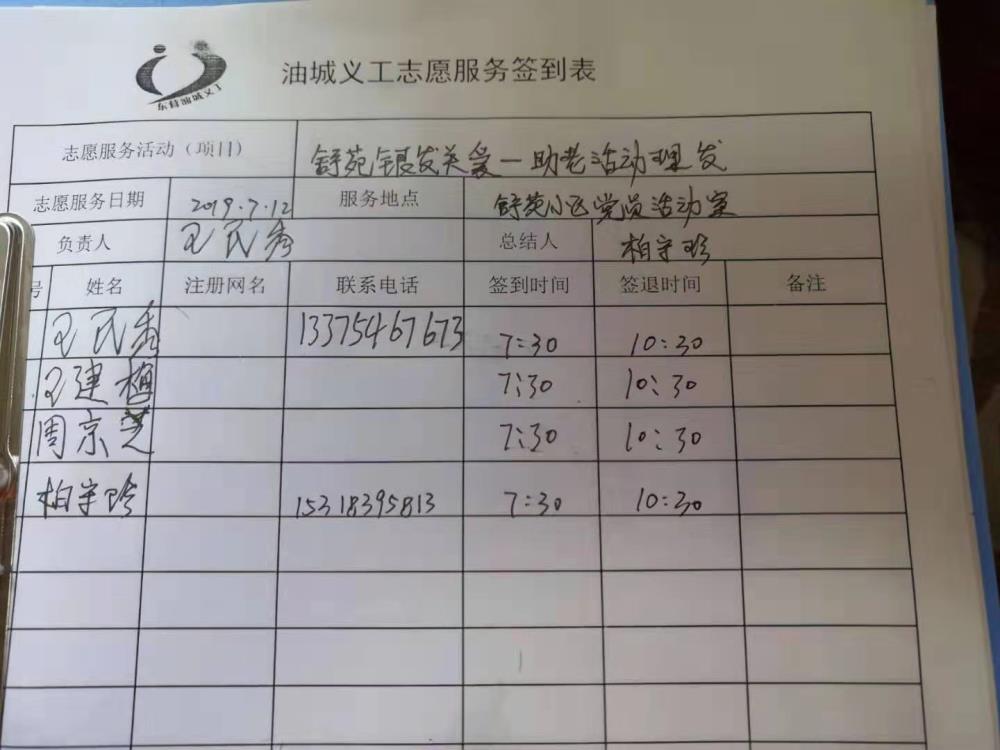 东营油城义工
油城义工志愿服务签到表
志愿服务活动（项目） 舒苑银发关爱一助老活动理发
志愿服务日期 2019.7.12 服务地点 舒苑小区党员活动室
负责人 王民秀 总结人 柏守珍
号 姓名 注册网名 联系电话 签到时间 签退时间 备注
王民秀 13375467673 7:30 10:30
王建梅 7:30 10:30
周京芝 7:30 10:30
柏守珍 15318395813 7:30 10:30